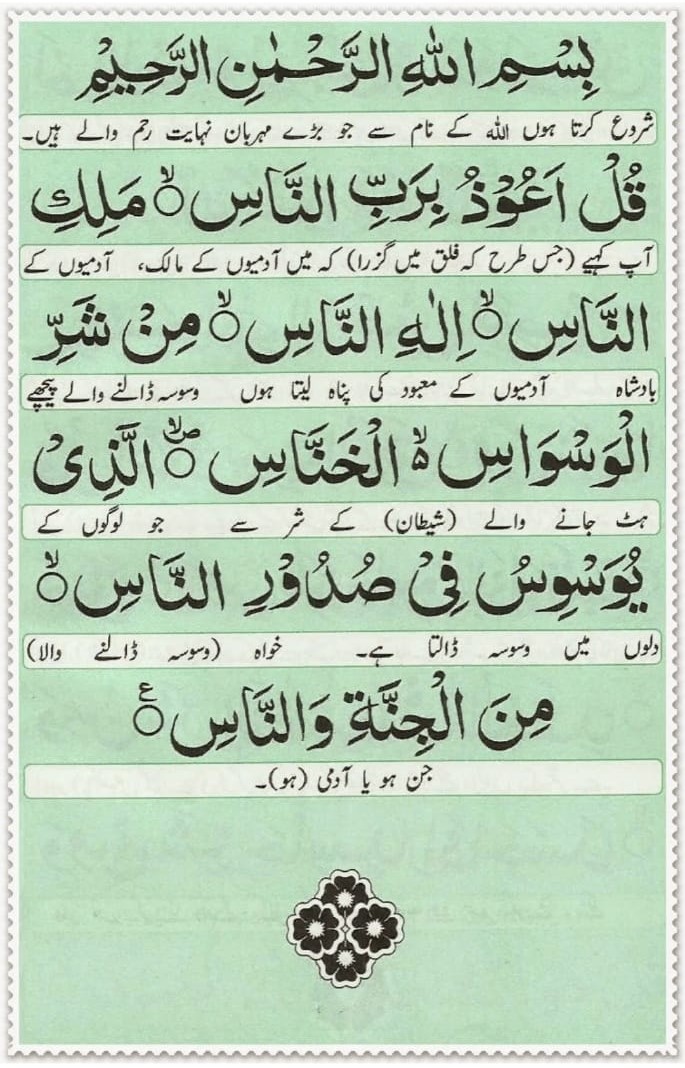 بِسْمِ اللهِ الرَّحْمٰنِ الرَّحِيْمِ
شروع کرتا ہوں اللہ کے نام سے جو بڑے مہربان نہایت رحم والے ہیں۔
قُلْ اَعُوْذُ بِرَبِّ النَّاسِ ۙ مَلِكِ
آپ کہیے (جس طرح کہ فلق میں گزرا) کہ میں آدمیوں کے مالک، آدمیوں کے
النَّاسِ ۙ اِلٰهِ النَّاسِ ۙ مِنْ شَرِّ
بادشاہ آدمیوں کے معبود کی پناہ لیتا ہوں وسوسہ ڈالنے والے پیچھے
الْوَسْوَاسِ ۙ الْخَنَّاسِ ۙ ۪ الَّذِیْ
ہٹ جانے والے (شیطان) کے شر سے جو لوگوں کے
یُوَسْوِسُ فِیْ صُدُوْرِ النَّاسِ ۙ
دلوں میں وسوسہ ڈالتا ہے۔ خواہ (وسوسہ ڈالنے والا)
مِنَ الْجِنَّةِ وَالنَّاسِ ع
جن ہو یا آدمی (ہو)۔